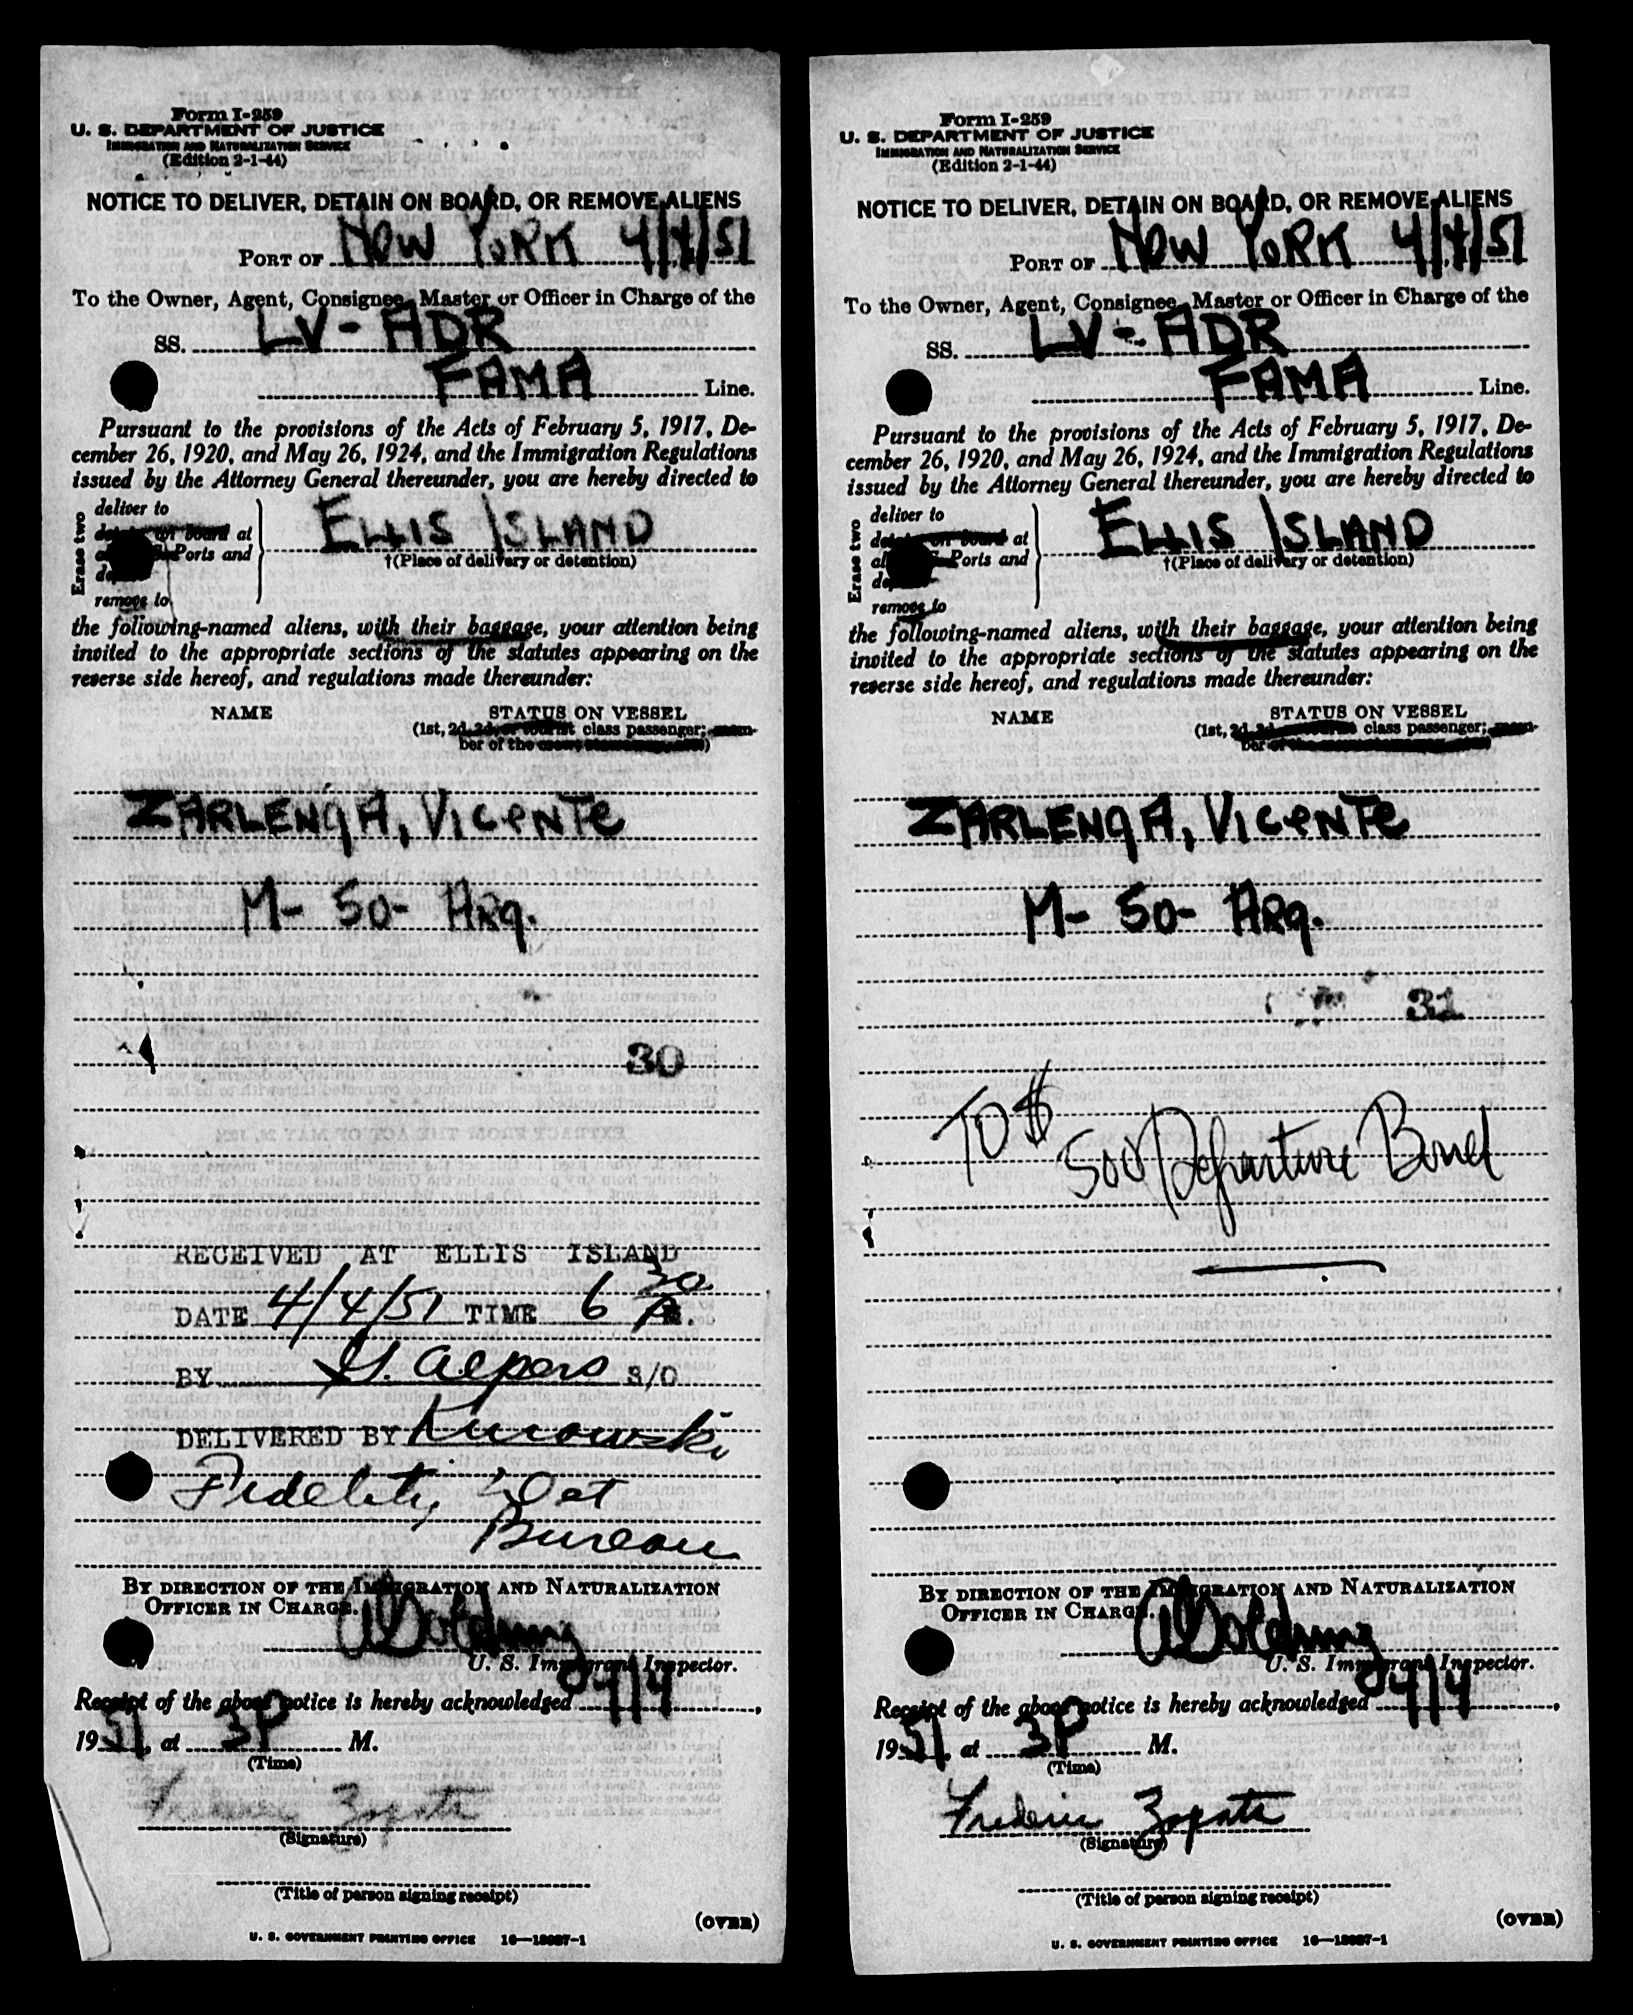 Form I-259
U. S. DEPARTMENT OF JUSTICE
IMMIGRATION AND NATURALIZATION SERVICE
(Edition 2-1-44)
NOTICE TO DELIVER, DETAIN ON BOARD, OR REMOVE ALIENS
PORT OF NEW YORK 4/4/51
To the Owner, Agent, Consignee, Master or Officer in Charge of the
SS. LV-ADR
FAMA Line.
Pursuant to the provisions of the Acts of February 5, 1917, De-
cember 26, 1920, and May 26, 1924, and the Immigration Regulations
issued by the Attorney General thereunder, you are hereby directed to
Erase two
deliver to
on board at
Ports and
remove to
ELLIS ISLAND
†(Place of delivery or detention)
the following-named aliens, with their baggage, your attention being
invited to the appropriate sections of the statutes appearing on the
reverse side hereof, and regulations made thereunder:
NAME STATUS ON VESSEL
(1st, 2d, 3d, or tourist class passenger; mem-
ber of the
ZARLENGA, VICENTE
M- 50- ARG.
30
RECEIVED AT ELLIS ISLAND
DATE 4/4/51 TIME 6 30 P.
BY G. Alpers S/O
DELIVERED BY Kurowski
Fidelity Det
Bureau
BY DIRECTION OF THE IMMIGRATION AND NATURALIZATION
OFFICER IN CHARGE.
U. S. Immigrant Inspector.
Receipt of the above notice is hereby acknowledged 4/4,
1951, at 3P M.
(Time)
Frederic Zapata
(Signature)
(Title of person signing receipt)
(OVER)
U. S. GOVERNMENT PRINTING OFFICE 16—18087-1
Form I-259
U. S. DEPARTMENT OF JUSTICE
IMMIGRATION AND NATURALIZATION SERVICE
(Edition 2-1-44)
NOTICE TO DELIVER, DETAIN ON BOARD, OR REMOVE ALIENS
PORT OF NEW YORK 4/4/51
To the Owner, Agent, Consignee, Master or Officer in Charge of the
SS. LV-ADR
FAMA Line.
Pursuant to the provisions of the Acts of February 5, 1917, De-
cember 26, 1920, and May 26, 1924, and the Immigration Regulations
issued by the Attorney General thereunder, you are hereby directed to
Erase two
deliver to
on board at
Ports and
remove to
ELLIS ISLAND
†(Place of delivery or detention)
the following-named aliens, with their baggage, your attention being
invited to the appropriate sections of the statutes appearing on the
reverse side hereof, and regulations made thereunder:
NAME STATUS ON VESSEL
(1st, 2d, 3d class passenger; mem-
ber of the
ZARLENGA, VICENTE
M- 50- ARG.
31
TO $
500 Departure Bond
BY DIRECTION OF THE IMMIGRATION AND NATURALIZATION
OFFICER IN CHARGE.
U. S. Immigrant Inspector.
Receipt of the above notice is hereby acknowledged 4/4,
1951, at 3P M.
(Time)
Frederic Zapata
(Signature)
(Title of person signing receipt)
(OVER)
U. S. GOVERNMENT PRINTING OFFICE 16—18087-1